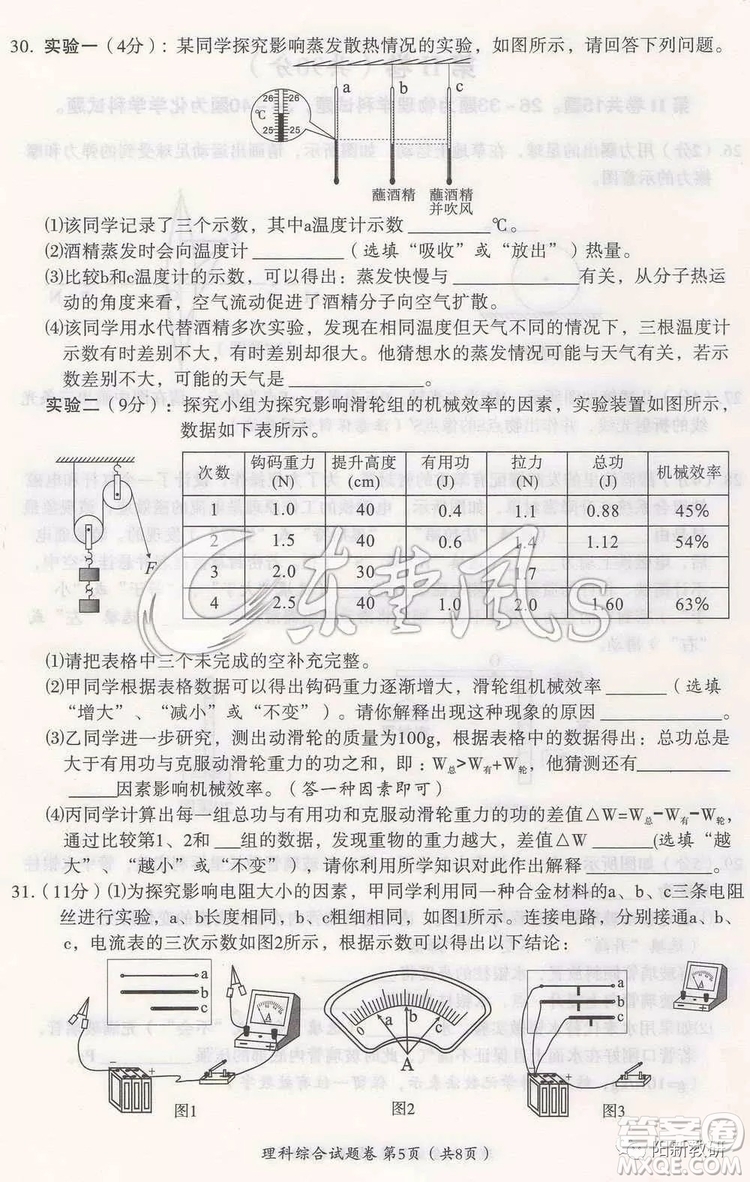 30. 实验一（4分）：某同学探究影响蒸发散热情况的实验，如图所示，请回答下列问题。
a b c
26 26
℃
25 25
蘸酒精 蘸酒精
并吹风
(1)该同学记录了三个示数，其中a温度计示数________℃。
(2)酒精蒸发时会向温度计________（选填“吸收”或“放出”）热量。
(3)比较b和c温度计的示数，得出：蒸发快慢与________有关，从分子运
动的角度来看，空气流动促进了酒精分子向空气扩散。
(4)该同学用水代替酒精多次实验，发现在相同温度但天气不同的情况下，三根温度
计示数有时差别不大，有时差别却很大。他猜想水的蒸发情况可能与天气有关，若示
数差别不大，可能的天气是________。
实验二（9分）：探究小组为探究影响滑轮组的机械效率的因素，实验装置如图所示，
数据如下表所示。
次数 钩码重力(N) 提升高度(cm) 有用功(J) 拉力(N) 总功(J) 机械效率
1 1.0 40 0.4 0.88 45%
2 1.5 40 0.6 1.4 1.12 54%
3 2.0 30 1.7
4 2.5 40 1.0 2.0 1.60 63%
F
(1)请把表格中三个未完成的空补充完整。
(2)甲同学根据表格数据可以得出钩码重力逐渐增大，滑轮组机械效率______（选填
“增大”、“减小”或“不变”）。请你解释出现这种现象的原因________。
(3)乙同学进一步研究，测出动滑轮的质量为100g，根据表格中的数据得出：总功总是
大于有用功与克服动滑轮重力的功之和，即：W总>W有+W轮，他猜测还有
______因素影响机械效率。（答一种即可）
(4)丙同学计算出每一组总功与有用功和克服动滑轮重力的功的差值△W=W总-W有-W轮，
通过比较第1、2和___组的数据，发现重物的重力越大，差值△W______（选填“越
大”、“越小”或“不变”）。请用所学知识对此作出解释________。
31. (11分) (1)为探究影响电阻大小的因素，甲同学利用同一种合金材料的a、b、c三条电阻
丝进行实验，a、b长度相同，b、c粗细相同，如图1所示。连接电路，分别接通a、b、
c，电流表的三次示数如图2所示，根据实验可以得出以下结论：
a
b
c
A
图1
0 5 10 15
A
图2
a
b
c
图3
理科综合试题卷 第5页（共8页）
东楚风s
阳新教研
答案圈